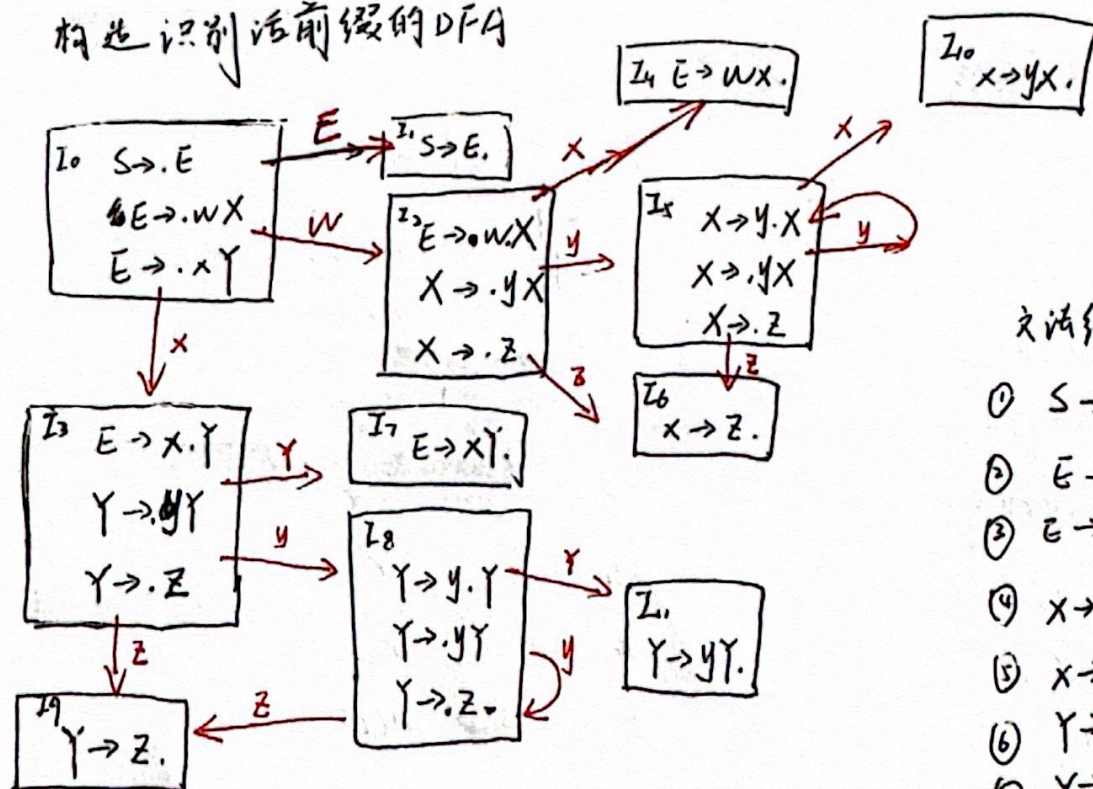 构造识别活前缀的DFA
I0 S→.E
E→.wX
E→.xY
E
w
x
I1 S→E.
I2 E→.w.X
X→.yX
X→.z
x
y
z
I4 E→wX.
I10
x→yX.
I5 X→y.X
X→.yX
X→.z
x
y
z
I6
x→z.
I3 E→x.Y
Y→.yY
Y→.z
Y
y
z
I7 E→xY.
I8
Y→y.Y
Y→.yY
Y→.z.
Y
y
z
I9
Y→z.
I11
Y→yY.
文法
① S→
② E→
③ E→
④ X→
⑤ X→
⑥ Y→